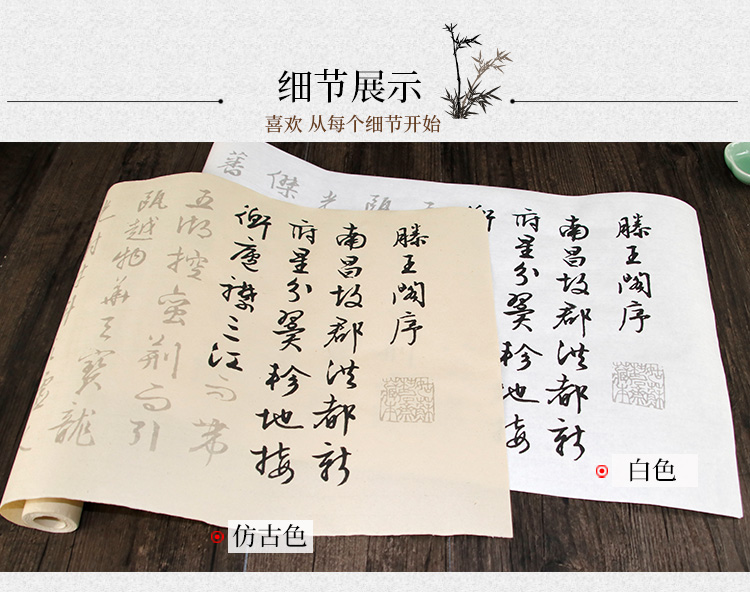 细节展示
喜欢 从每个细节开始
滕王閣序
南昌故郡洪都新
府星分翼軫地接
衡廬襟三江而帶
五湖控蛮荆而引
甌越物華天寶龍
仿古色
滕王閣序
南昌故郡洪都新
府星分翼軫地接
白色